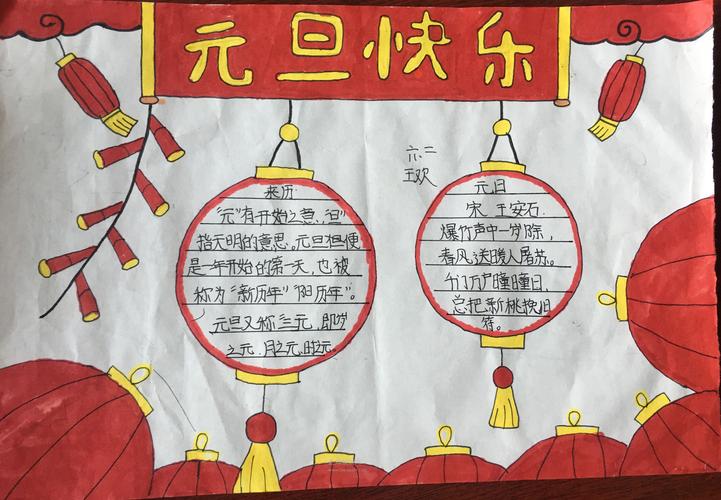 元旦快乐
六.二
王欢
来历
"元"有开始之意,"旦"
指天明的意思。元旦担便
是一年开始的第一天,也被
称为"新历年""阳历年"。
元旦又称"三元,即岁
之元,月之元,时之元。
元日
宋 王安石.
爆竹声中一岁除,
春风送暖入屠苏。
千门万户曈曈日,
总把新桃换旧
符。